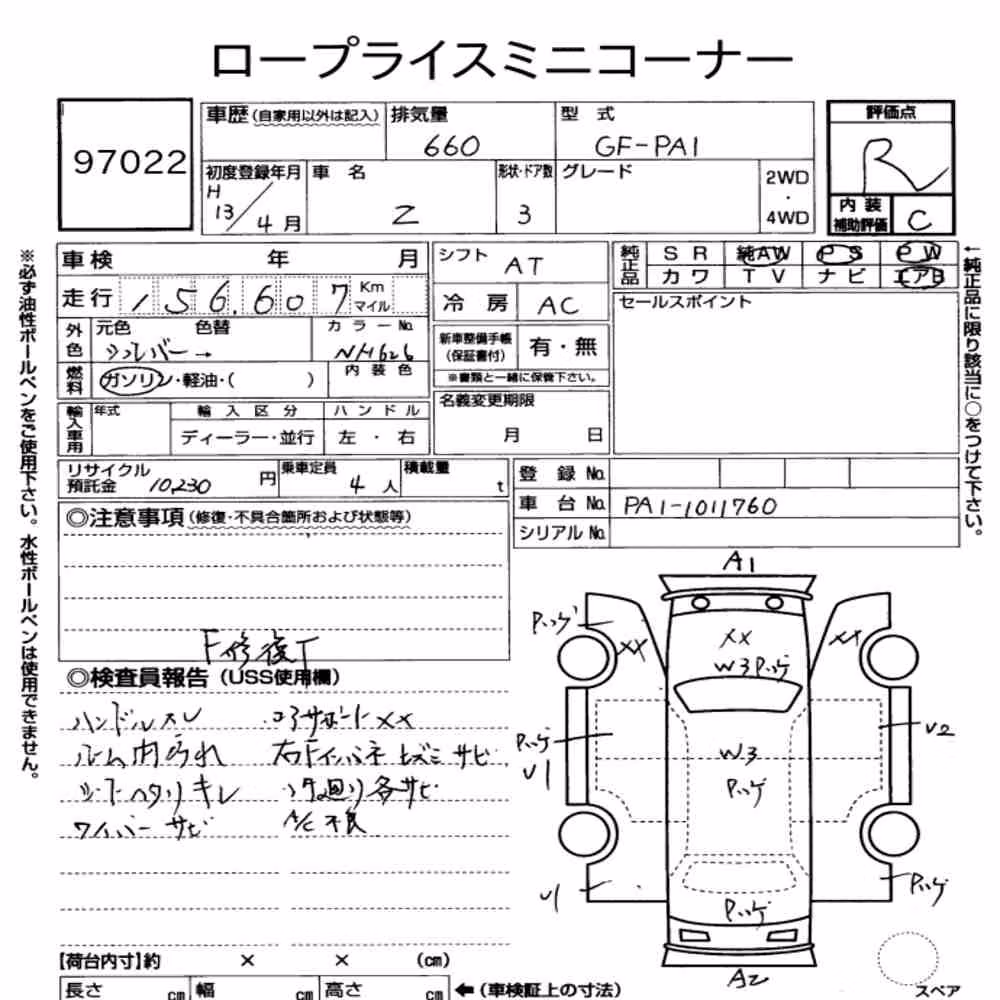 ロープライスミニコーナー
97022
車歴(自家用以外は記入) 排気量 660 型式 GF-PA1
評価点 R
初度登録年月 H 13/4月 車名 Z 形状・ドア数 3 グレード 2WD・4WD
内装補助評価 C
車検 年 月
走行 156,607 Km マイル
シフト AT
冷房 AC
純正品 SR 純AW PS PW
カワ TV ナビ エアB
セールスポイント
外色 元色 シルバー→ 色替 カラーNo. NH626
燃料 ガソリン・軽油・( ) 内装色
新車整備手帳(保証書付) 有・無
※書類と一緒に保管下さい。
名義変更期限 月 日
輸入車用 年式 輸入区分 ハンドル
ディーラー・並行 左・右
リサイクル預託金 10,230円 乗車定員 4人 積載量 t
登録No.
車台No. PA1-1011760
シリアルNo.
◎注意事項(修復・不具合箇所および状態等)
F修復T
◎検査員報告(USS使用欄)
ハンドルスレ コアサポートXX
ルーム内ヨゴれ 右Fインパネ ヒズミ サビ
シートヘタリキレ 下廻り各サビ
ワイパーサビ A/C不良
【荷台内寸】約 × × (cm)
長さ cm 幅 cm 高さ cm ←(車検証上の寸法)
A1
Pハゲ
XX XX XX
W3Pハゲ
Pハゲ
V1
W3
Pハゲ
V2
V1
Pハゲ
Pハゲ
A2
スペア
※必ず油性ボールペンをご使用下さい。水性ボールペンは使用できません。
←純正品に限り該当に○をつけて下さい。